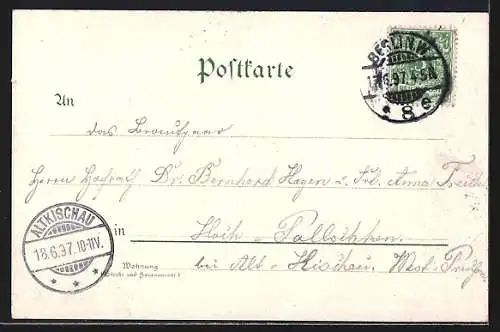 Postkarte
BERLIN W.
17.6.97. 4-5N.
* 8 e
An
das Brautpaar
Herrn Dr. Bernhard Hagen u. Frl. Anna
ALTKISCHAU
18.6.97. 10-11V.
* * *
in
bei Alt-Kischau, West-
Wohnung
(Straße und Hausnummer)